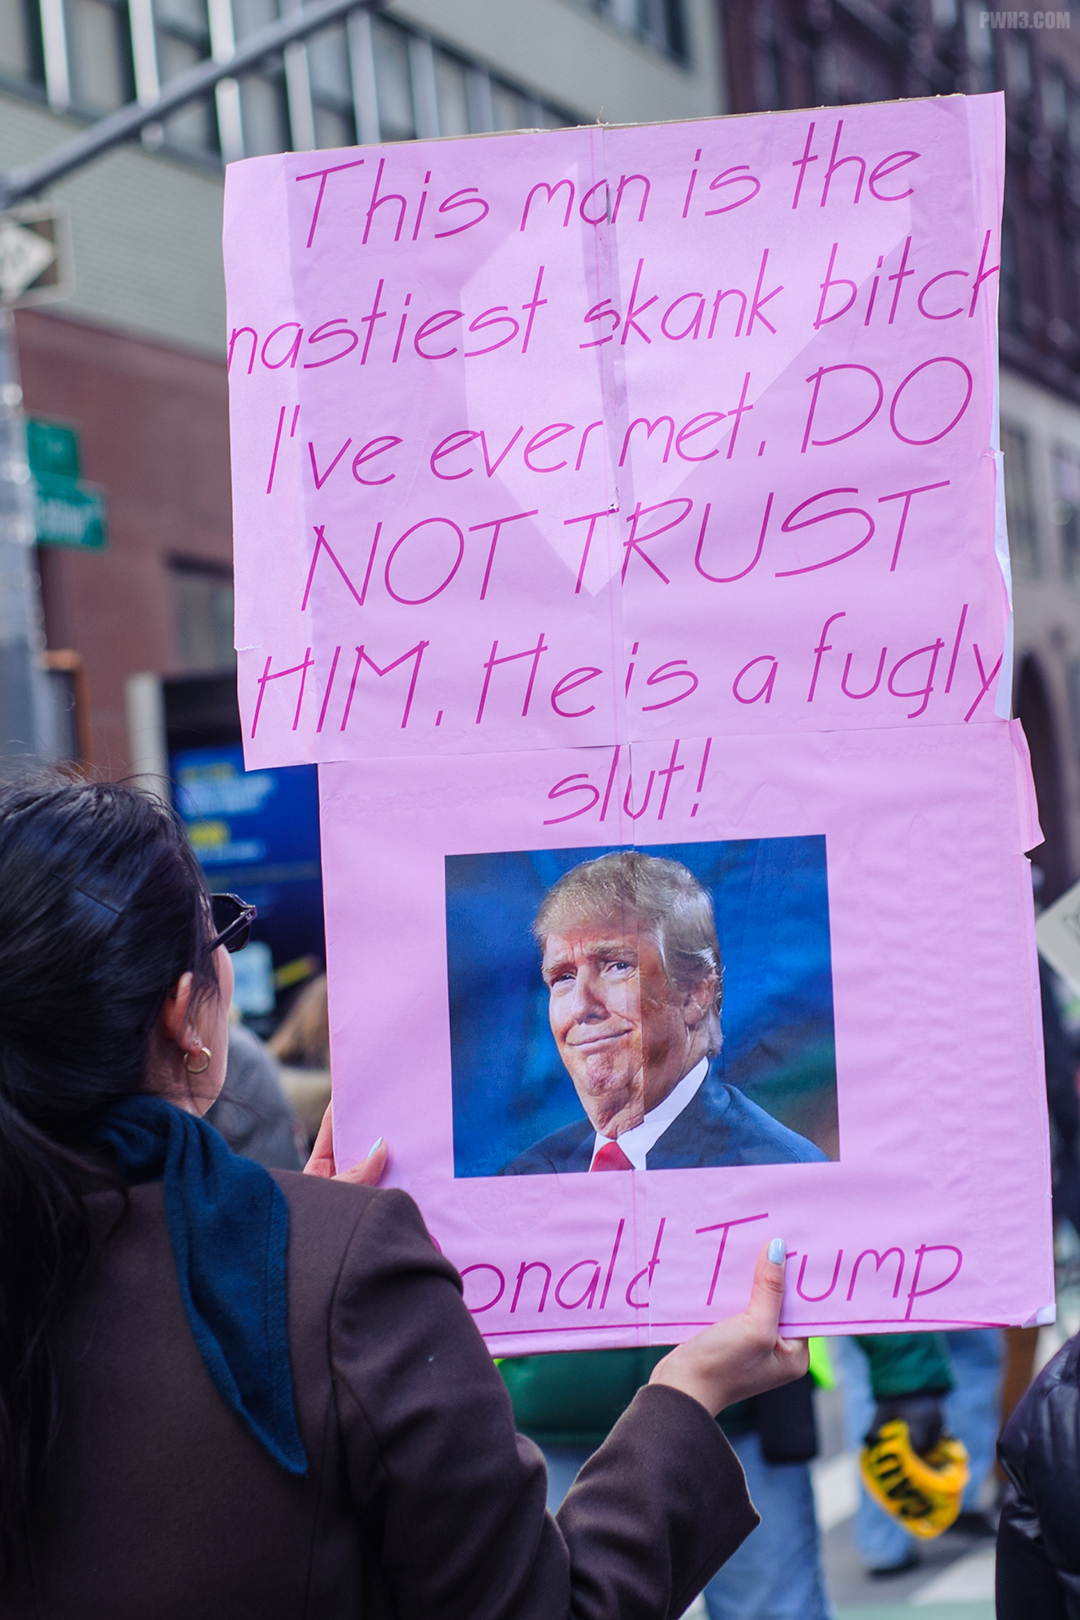 PWH3.COM
This man is the
nastiest skank bitch
I've ever met. DO
NOT TRUST
HIM. He is a fugly
slut!
Donald Trump